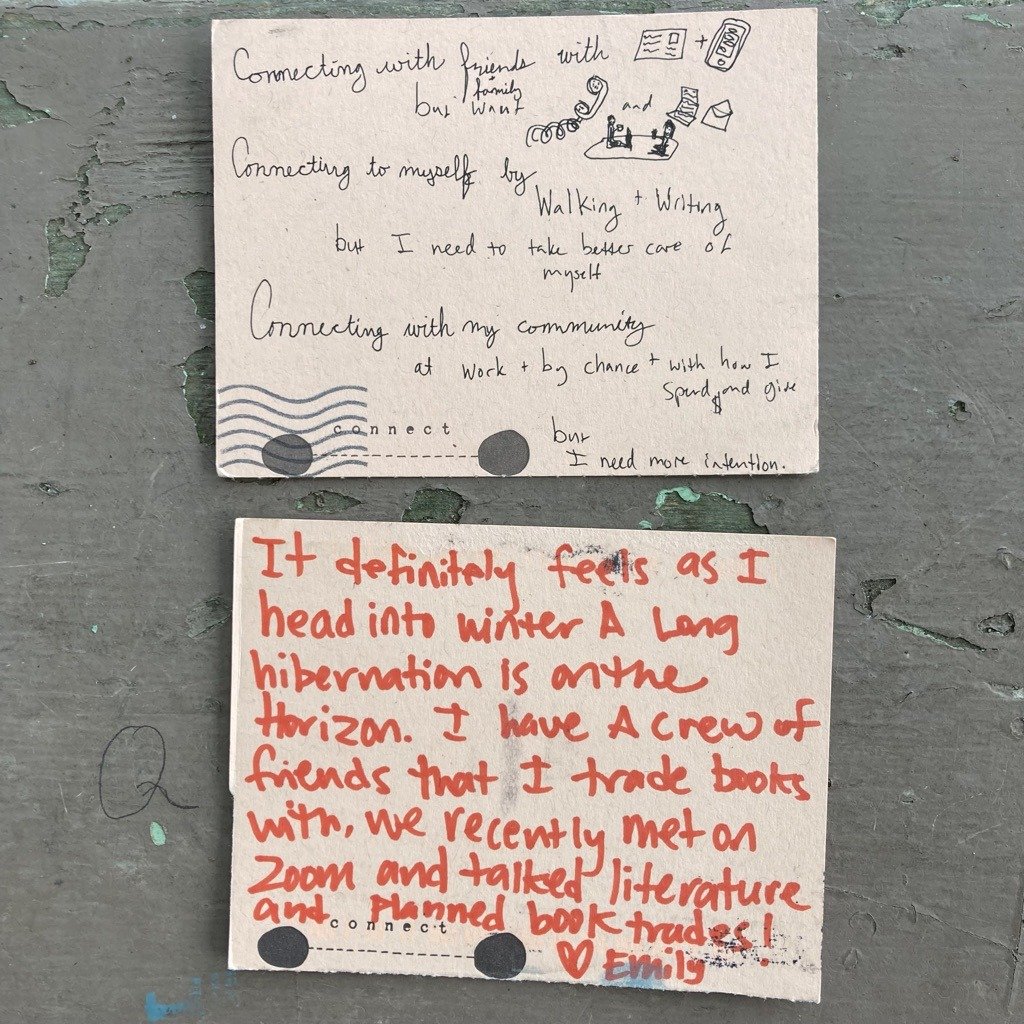 Connecting with friends with +
+ family
but want and
Connecting to myself by
Walking + Writing
but I need to take better care of
myself
Connecting with my community
at work + by chance + with how I
spend $ and give
connect
but
I need more intention.
It definitely feels as I
head into winter A Long
hibernation is on the
Horizon. I have A crew of
friends that I trade books
with, we recently met on
Zoom and talked literature
and Planned book trades!
connect
♡ Emily